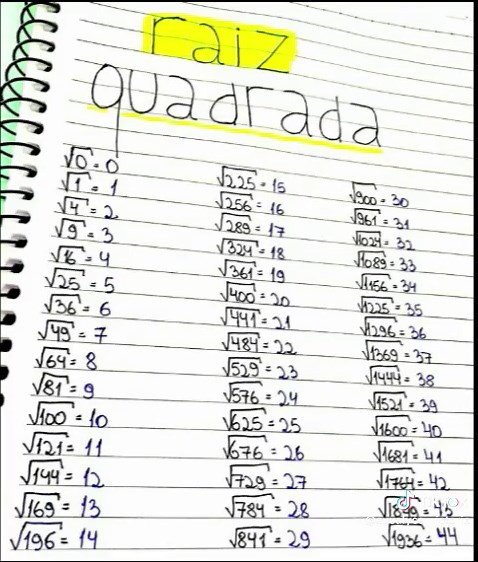 raiz
quadrada
√0 = 0
√1 = 1
√4 = 2
√9 = 3
√16 = 4
√25 = 5
√36 = 6
√49 = 7
√64 = 8
√81 = 9
√100 = 10
√121 = 11
√144 = 12
√169 = 13
√196 = 14
√225 = 15
√256 = 16
√289 = 17
√324 = 18
√361 = 19
√400 = 20
√441 = 21
√484 = 22
√529 = 23
√576 = 24
√625 = 25
√676 = 26
√729 = 27
√784 = 28
√841 = 29
√900 = 30
√961 = 31
√1024 = 32
√1089 = 33
√1156 = 34
√1225 = 35
√1296 = 36
√1369 = 37
√1444 = 38
√1521 = 39
√1600 = 40
√1681 = 41
√1764 = 42
√1849 = 43
√1936 = 44